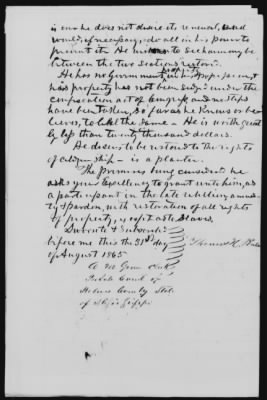 ion he does not desire its renewal, and
would, if necessary, do all in his power to
prevent it. He to see harmony be
between the two sections restored.
He has no Government property
his property has not been under the
confiscation act of Congress and no steps
have been taken, so far as he knows or be
lieves, to libel the same. He is worth great
ly less than twenty thousand dollars.
He desires to be restored to the rights
of citizenship — is a planter.
The premises being considered he
asks your Excellency to grant unto him, as
a participant in the late rebellion amnes
ty & pardon, with restoration of all rights
of property, except as to slaves.
Subscribed
before me this the 31st day
of August 1865 Thomas H.
Clk
Probate Court of
Holmes County State
of Mississippi